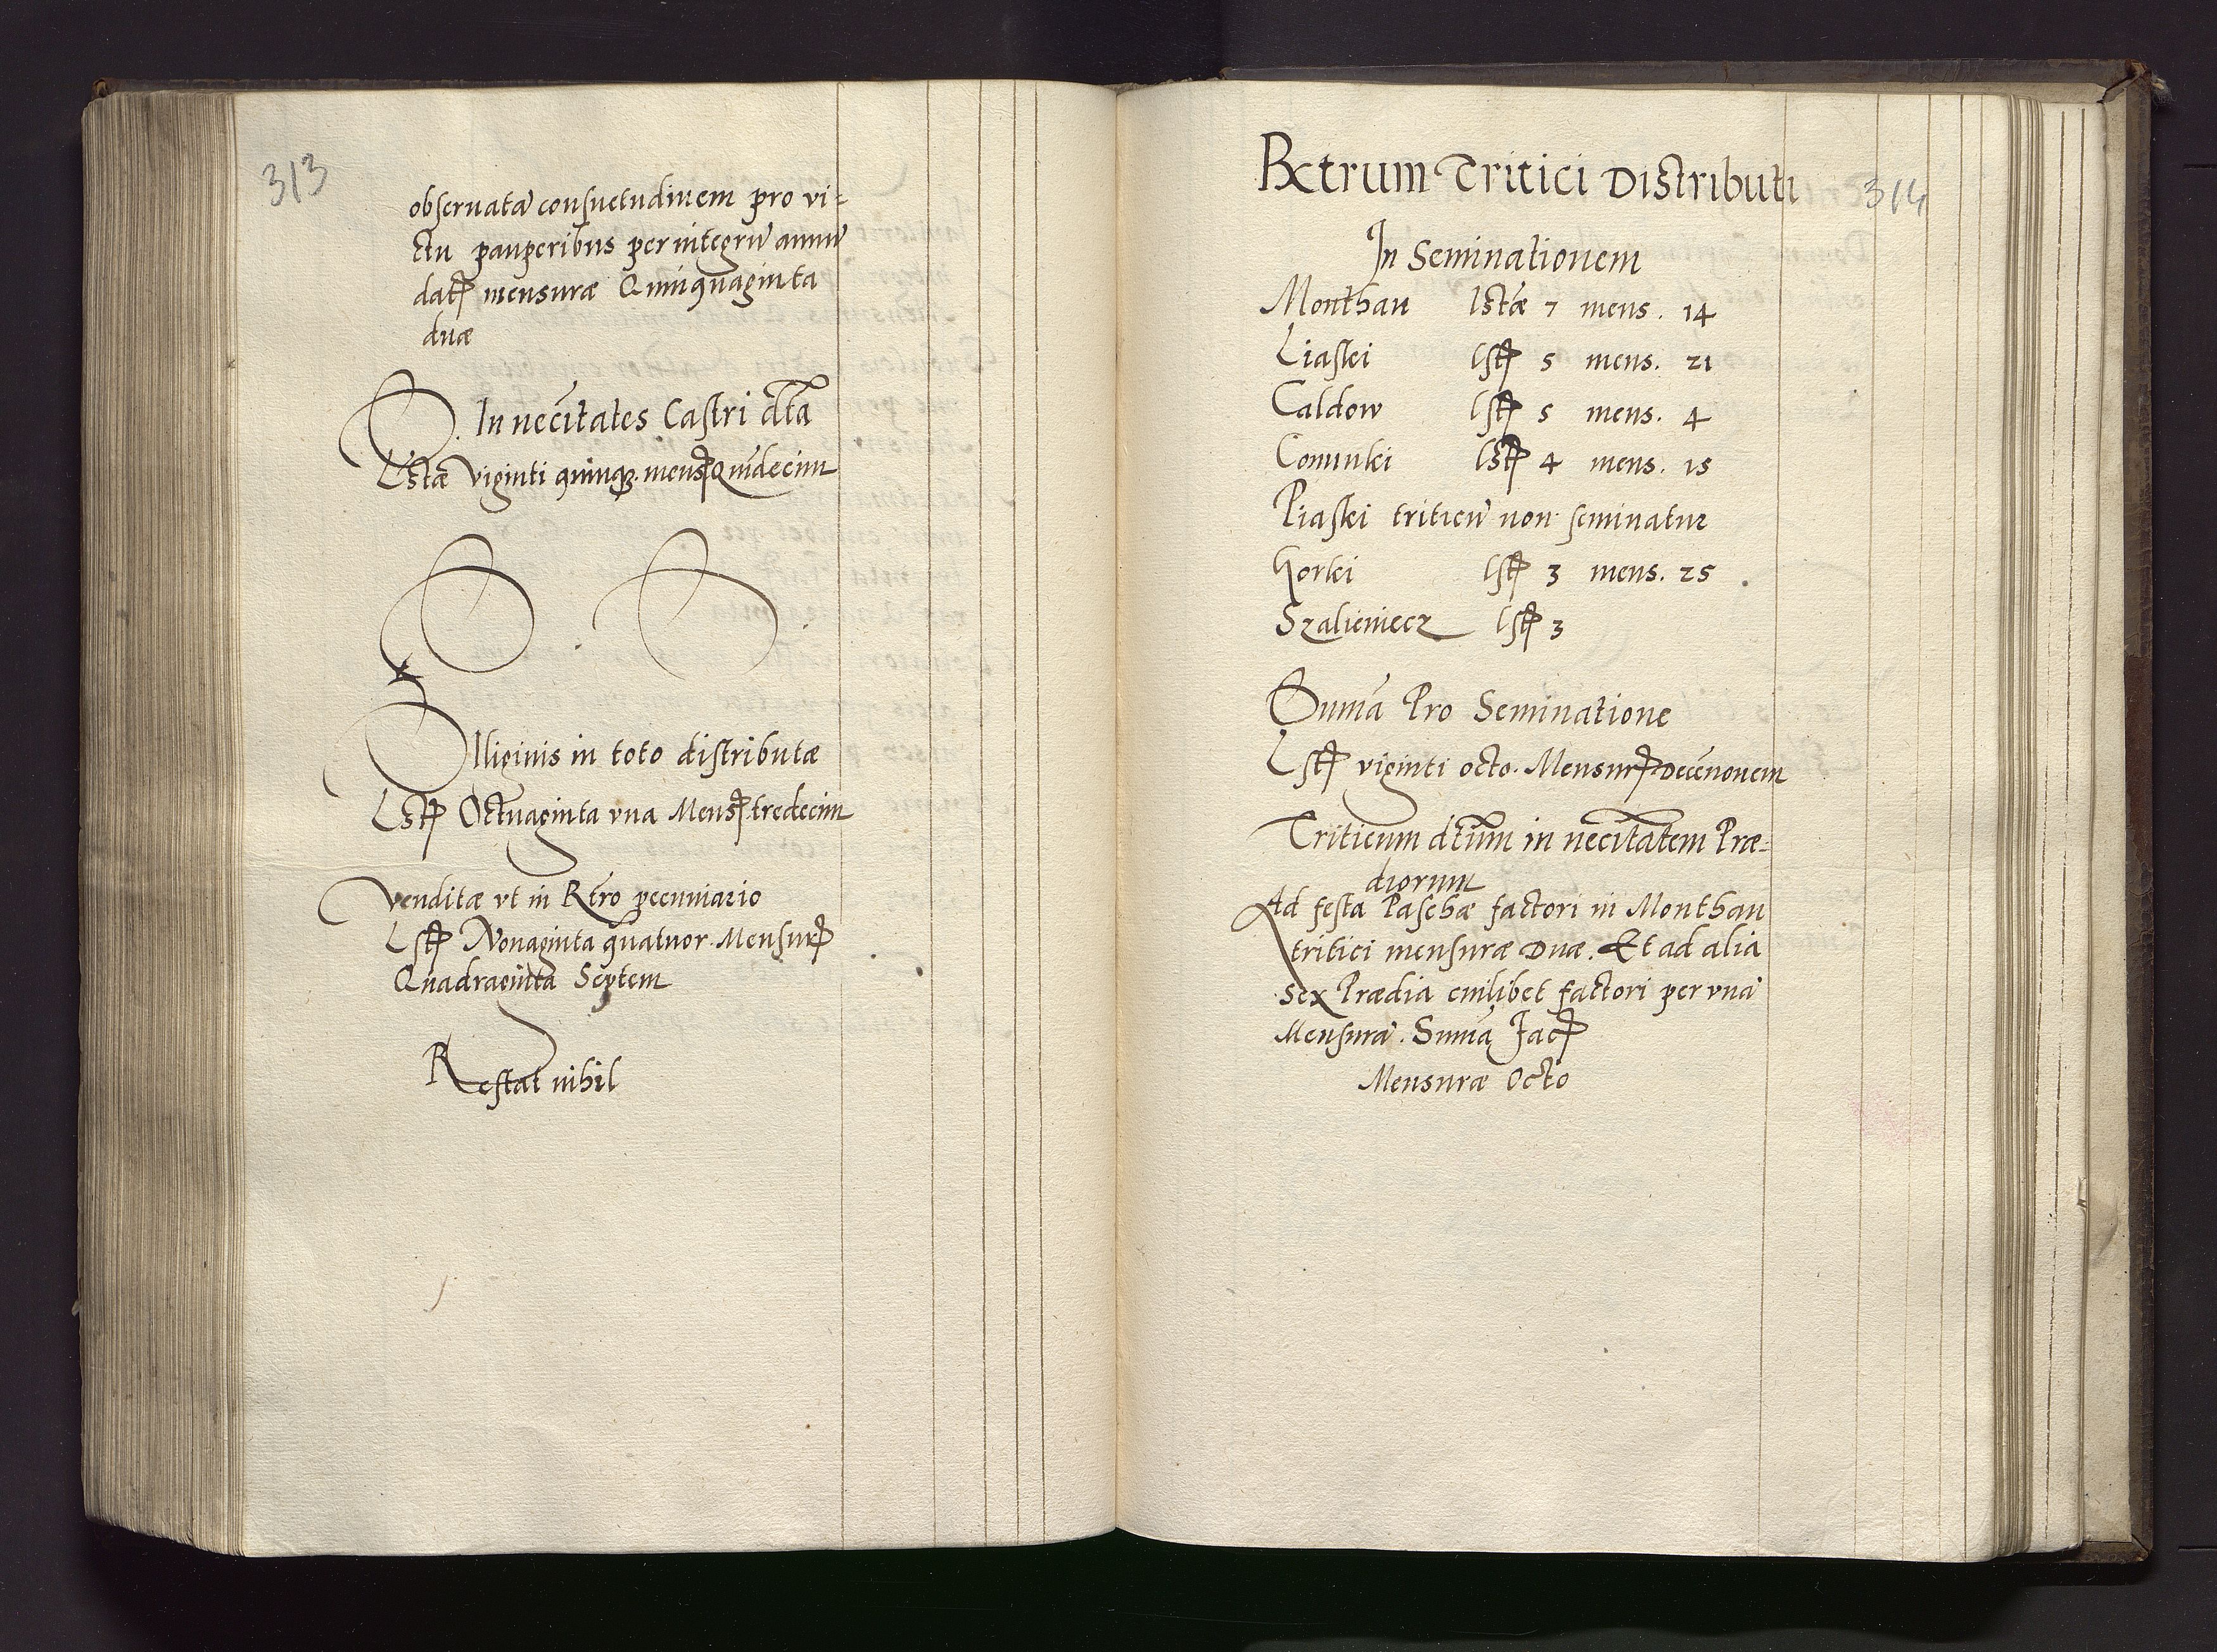 313
obseruatã consuetudinem pro vi=
ctu pauperibus per integrũ annũ
datę mensuræ Quinquaginta
duæ
S. In necĩtates Castri dta
Lstæ viginti quinqꝫ. mensę Quindecim
S. S.
Siliginis in toto distributæ
Lstę Octuaginta vna Mensę. tredecim
Venditæ vt in Rtro pecuniario
Lstę Nonaginta quatuor. Mensurę
Quadraginta Septem
Restat nihil
314
Rxtrum Tritici Distributi
In Seminationem
Monthau lstæ 7 mens. 14
Liaski lstę 5 mens. 21
Caldow lstę 5 mens. 4
Comunki lstę 4 mens. 15
Piaski triticũ non seminatur
Horki lstę 3 mens. 25
Szalieniecz lstę 3
Suma Pro Seminatione
Lstę viginti octo. Mensurę Decẽnouem
Triticum dtum in necitatem Præ=
diorum
Ad festa Paschæ factori in Monthau
tritici mensuræ Duæ. Et ad alia
Sex Prædia cuilibet factori per vnã
Mensurã. Sumã facę
Mensuræ Octo